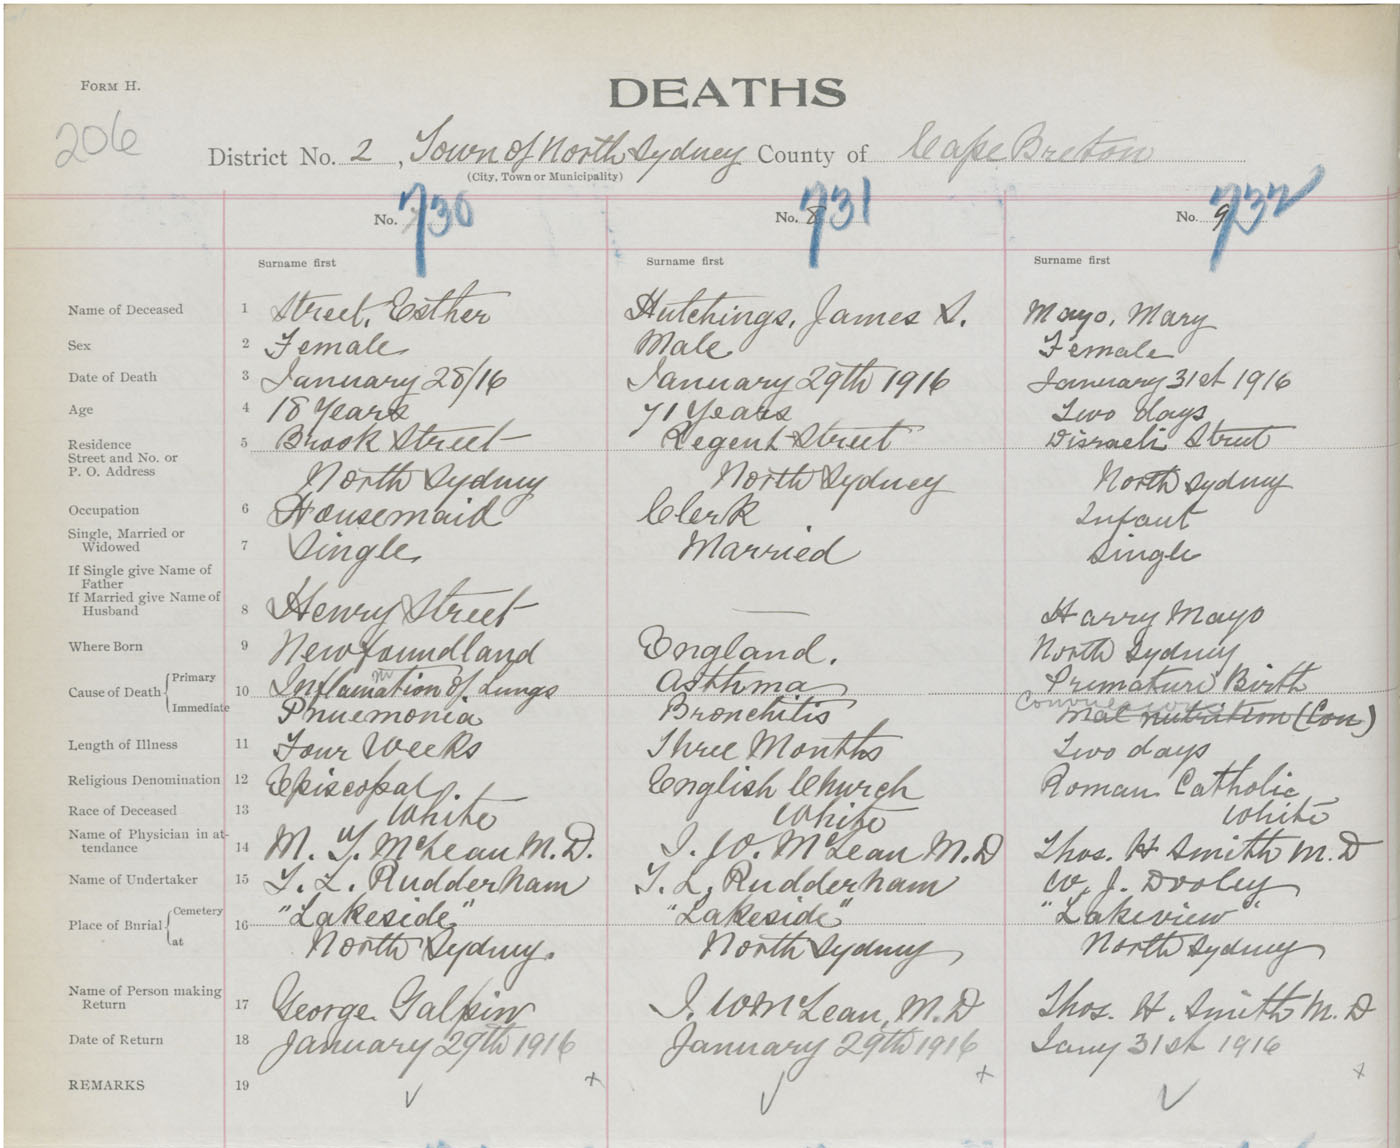 FORM H.
DEATHS
206
District No. 2, Town of North Sydney County of Cape Breton
(City, Town or Municipality)
No. 730 No. 8 731 No. 9 732
Surname first Surname first Surname first
Name of Deceased 1 Street, Esther Hutchings, James S. Mayo, Mary
Sex 2 Female Male Female
Date of Death 3 January 28/16 January 29th 1916 January 31st 1916
Age 4 18 Years 71 Years Two days
Residence
Street and No. or 5 Brook Street Regent Street Disraeli Street
P. O. Address North Sydney North Sydney North Sydney
Occupation 6 Housemaid Clerk Infant
Single, Married or
Widowed 7 Single Married Single
If Single give Name of
Father
If Married give Name of
Husband 8 Henry Street — Harry Mayo
Where Born 9 Newfoundland England. North Sydney
Cause of Death { Primary 10 Inflamation of Lungs Asthma Premature Birth
Immediate Pnuemonia Bronchitis Mal nutrition (Con)
Length of Illness 11 Four Weeks Three Months Two days
Religious Denomination 12 Episcopal English Church Roman Catholic
Race of Deceased 13 White White White
Name of Physician in at-
tendance 14 M. T. McLean M.D. J. W. McLean M.D Thos. H Smith M.D
Name of Undertaker 15 T. L. Rudderham T. L. Rudderham W. J. Dooley
Place of Burial { Cemetery 16 "Lakeside" "Lakeside" "Lakeview"
at North Sydney. North Sydney North Sydney
Name of Person making
Return 17 George Galpin J. W McLean, M.D Thos. H. Smith M.D
Date of Return 18 January 29th 1916 January 29th 1916 Jany 31st 1916
REMARKS 19